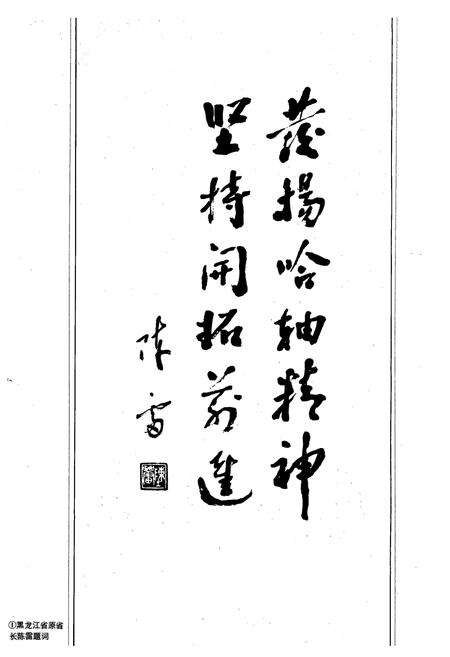 發揚哈軸精神
坚持開拓前進
陈雷
①黑龙江省原省
长陈雷题词